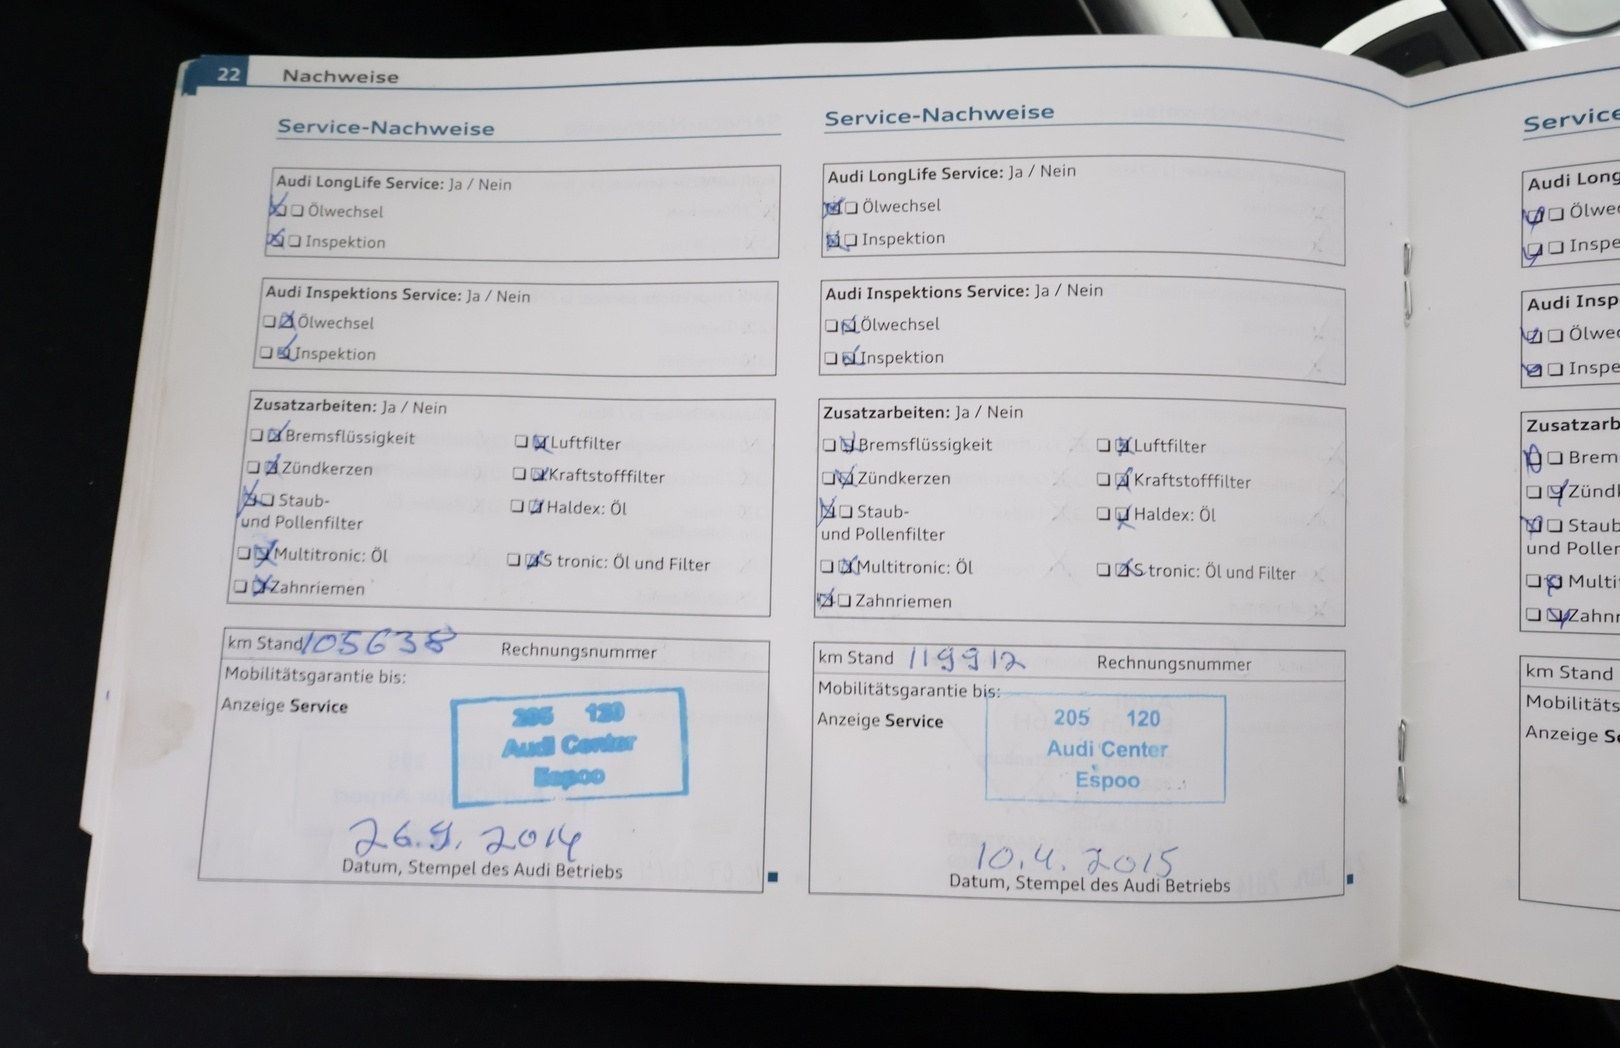 22 Nachweise
Service-Nachweise
Audi LongLife Service: Ja / Nein
Ölwechsel
Inspektion
Audi Inspektions Service: Ja / Nein
Ölwechsel
Inspektion
Zusatzarbeiten: Ja / Nein
Bremsflüssigkeit Luftfilter
Zündkerzen Kraftstofffilter
Staub- Haldex: Öl
und Pollenfilter
Multitronic: Öl S tronic: Öl und Filter
Zahnriemen
km Stand 105638 Rechnungsnummer
Mobilitätsgarantie bis:
Anzeige Service
205 120
Audi Center
Espoo
26.9.2014
Datum, Stempel des Audi Betriebs
Service-Nachweise
Audi LongLife Service: Ja / Nein
Ölwechsel
Inspektion
Audi Inspektions Service: Ja / Nein
Ölwechsel
Inspektion
Zusatzarbeiten: Ja / Nein
Bremsflüssigkeit Luftfilter
Zündkerzen Kraftstofffilter
Staub- Haldex: Öl
und Pollenfilter
Multitronic: Öl S tronic: Öl und Filter
Zahnriemen
km Stand 119912 Rechnungsnummer
Mobilitätsgarantie bis:
Anzeige Service
205 120
Audi Center
Espoo
10.4.2015
Datum, Stempel des Audi Betriebs
Service
Audi Long
Ölwe
Inspe
Audi Insp
Ölwe
Inspe
Zusatzarb
Brem
Zünd
Staub
und Poller
Multi
Zahn
km Stand
Mobilitäts
Anzeige Se